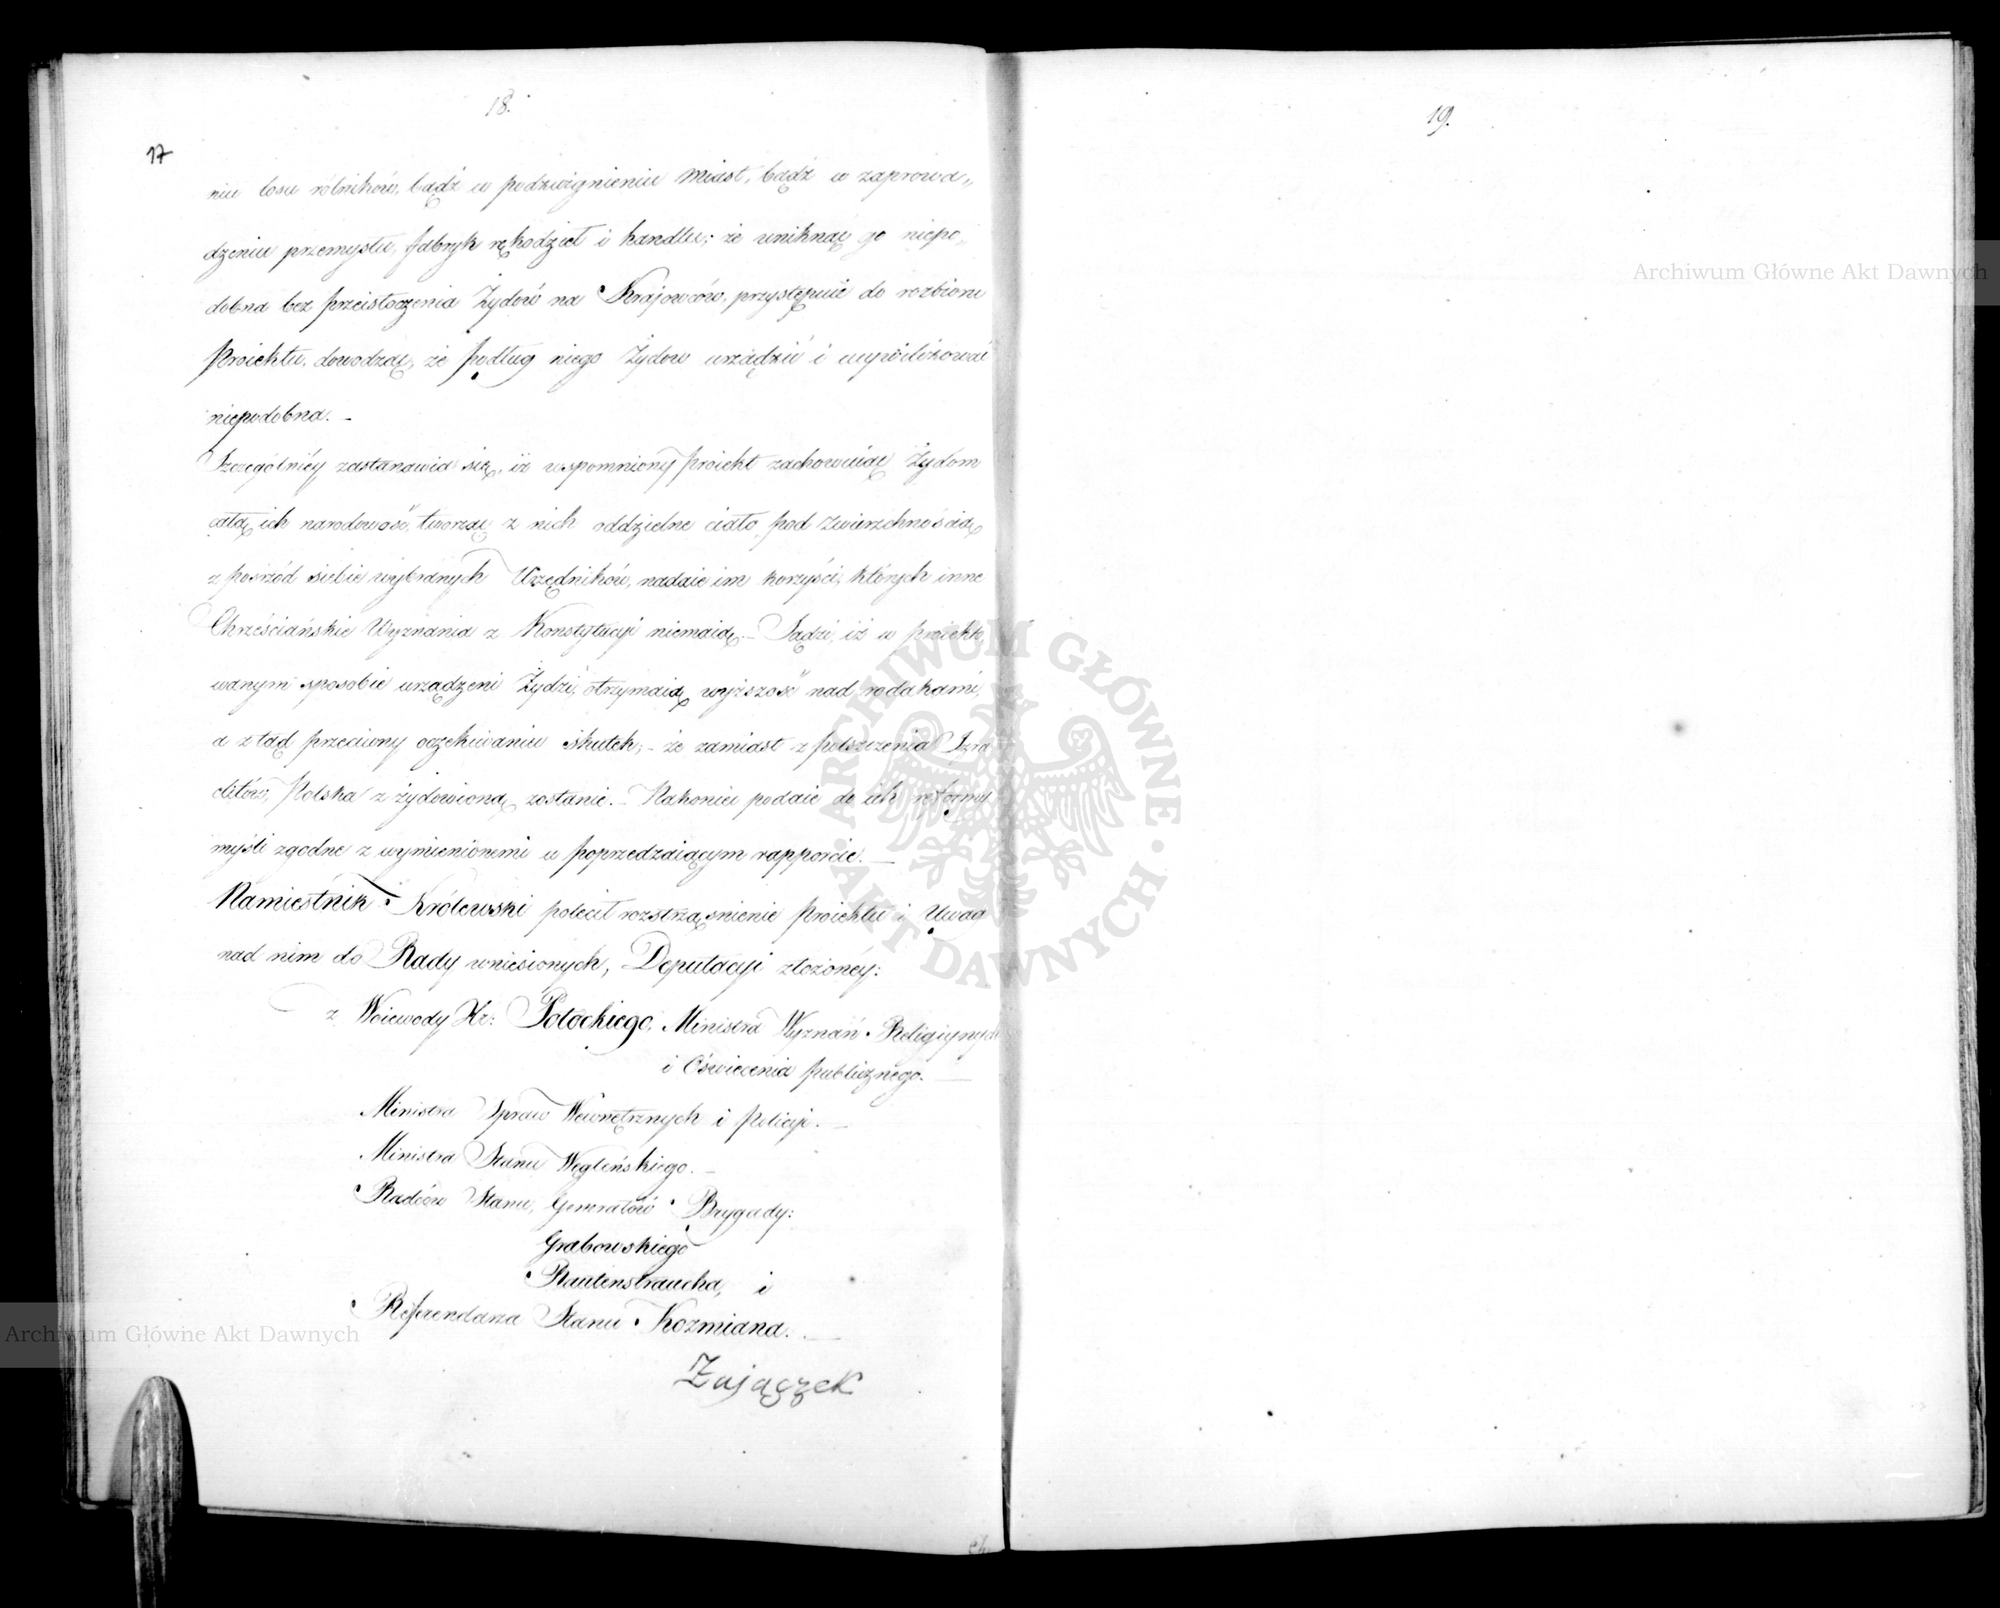 18.
17
niu losu rolników, bądź w podzwignieniu Miast, bądź w zaprowa„
dzeniu przemysłu, fabryk rękodzieł i handlu; że uniknąć go niepo„
dobna bez przeistoczenia Żydów na Krajowców, przystępuie do rozbioru
Proiektu, dowodząc, że podług niego Żydow urządzić i ucywilizować
niepodobna. –
Szczególniey zastanawia się, iż wspomniony proiekt zachowuiąc Żydom
całą ich narodowość, tworząc z nich oddzielne ciało, pod zwierzchnością
z pośrzód siebie wybranych Urzędników, nadaie im korzyści, których inne
Chrześciańskie Wyznania z Konstytucyi niemaią. – Sądzi, iż w proiekto
wanym sposobie urządzeni Żydzi, otrzymaią wyższość nad rodakami,
a ztąd przeciwny oczekiwaniu skutek; – że zamiast z polszczenia Izra
elitów, Polska z żydowioną zostanie. – Nakoniec podaie do ich reformy
myśli zgodne z wymienionemi w poprzedzaiącym rapporcie. —
Namiestnik Królewski polecił rozstrząśnienie Proiektu i Uwag
nad nim do Rady wniesionych, Deputacyi złożoney:
z Woiewody Hr: Potockiego, Ministra Wyznań Religiynych
i Oświecenia publicznego. —
Ministra Spraw Wewnętrznych i Policyi. —
Ministra Stanu Węgleńskiego. –
Radców Stanu, Generałów Brygady:
Grabowskiego
Rautenstraucha, i
Referendarza Stanu Kozmiana. —
Zajączek
19.
Archiwum Główne Akt Dawnych
Archiwum Główne Akt Dawnych
ARCHIWUM GŁÓWNE · AKT DAWNYCH ·